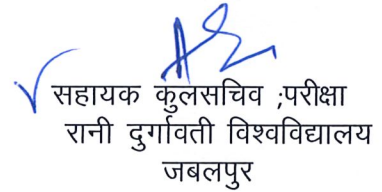 सहायक कुलसचिव ;परीक्षा
रानी दुर्गावती विश्वविद्यालय
जबलपुर